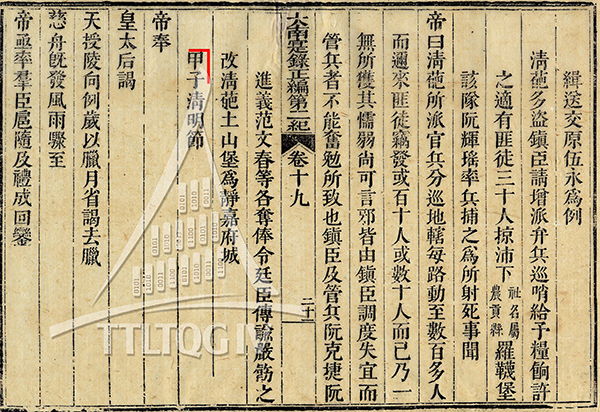 緝送交原伍永爲例
清葩多盜鎮臣請增派弁兵巡哨給予糧餉許
之適有匪徒三十人掠沛下社名屬農貢縣羅韈堡
該隊阮輝瑤率兵捕之爲所射死事聞
帝曰清葩所派官兵分巡地轄每路動至數百多人
而邇來匪徒竊發或百十人或數十人而已乃一
無所獲其懦弱尚可言邪皆由鎮臣調度失宜而
管兵者不能奮勉所致也鎮臣及管兵阮克捷阮
大南寔錄正編第二紀 卷十九 二十一
進義范文春等各奪俸令廷臣傳諭嚴飭之
改清葩土山堡爲靜嘉府城
甲子清明節
帝奉
皇太后謁
天授陵向例歲以臘月省謁去臘
慈舟旣發風雨驟至
帝亟率羣臣扈隨及禮成回鑾
TTLTQG IV